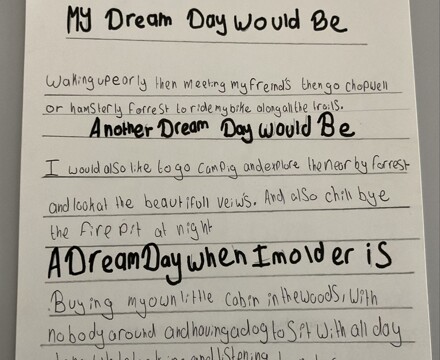 My Dream Day would Be
waking up early then meeting my freinds then go chopwell
or hamsterly forrest to ride my bike along all the trails.
Another Dream Day would Be
I would also like to go camping and explore the near by forrest
and look at the beautifull veiws. And also chill bye
the fire pit at night
A Dream Day when I'm older is
Buying my own little cabin in the woods, with
nobody around and having a dog to sit with all day
and listening